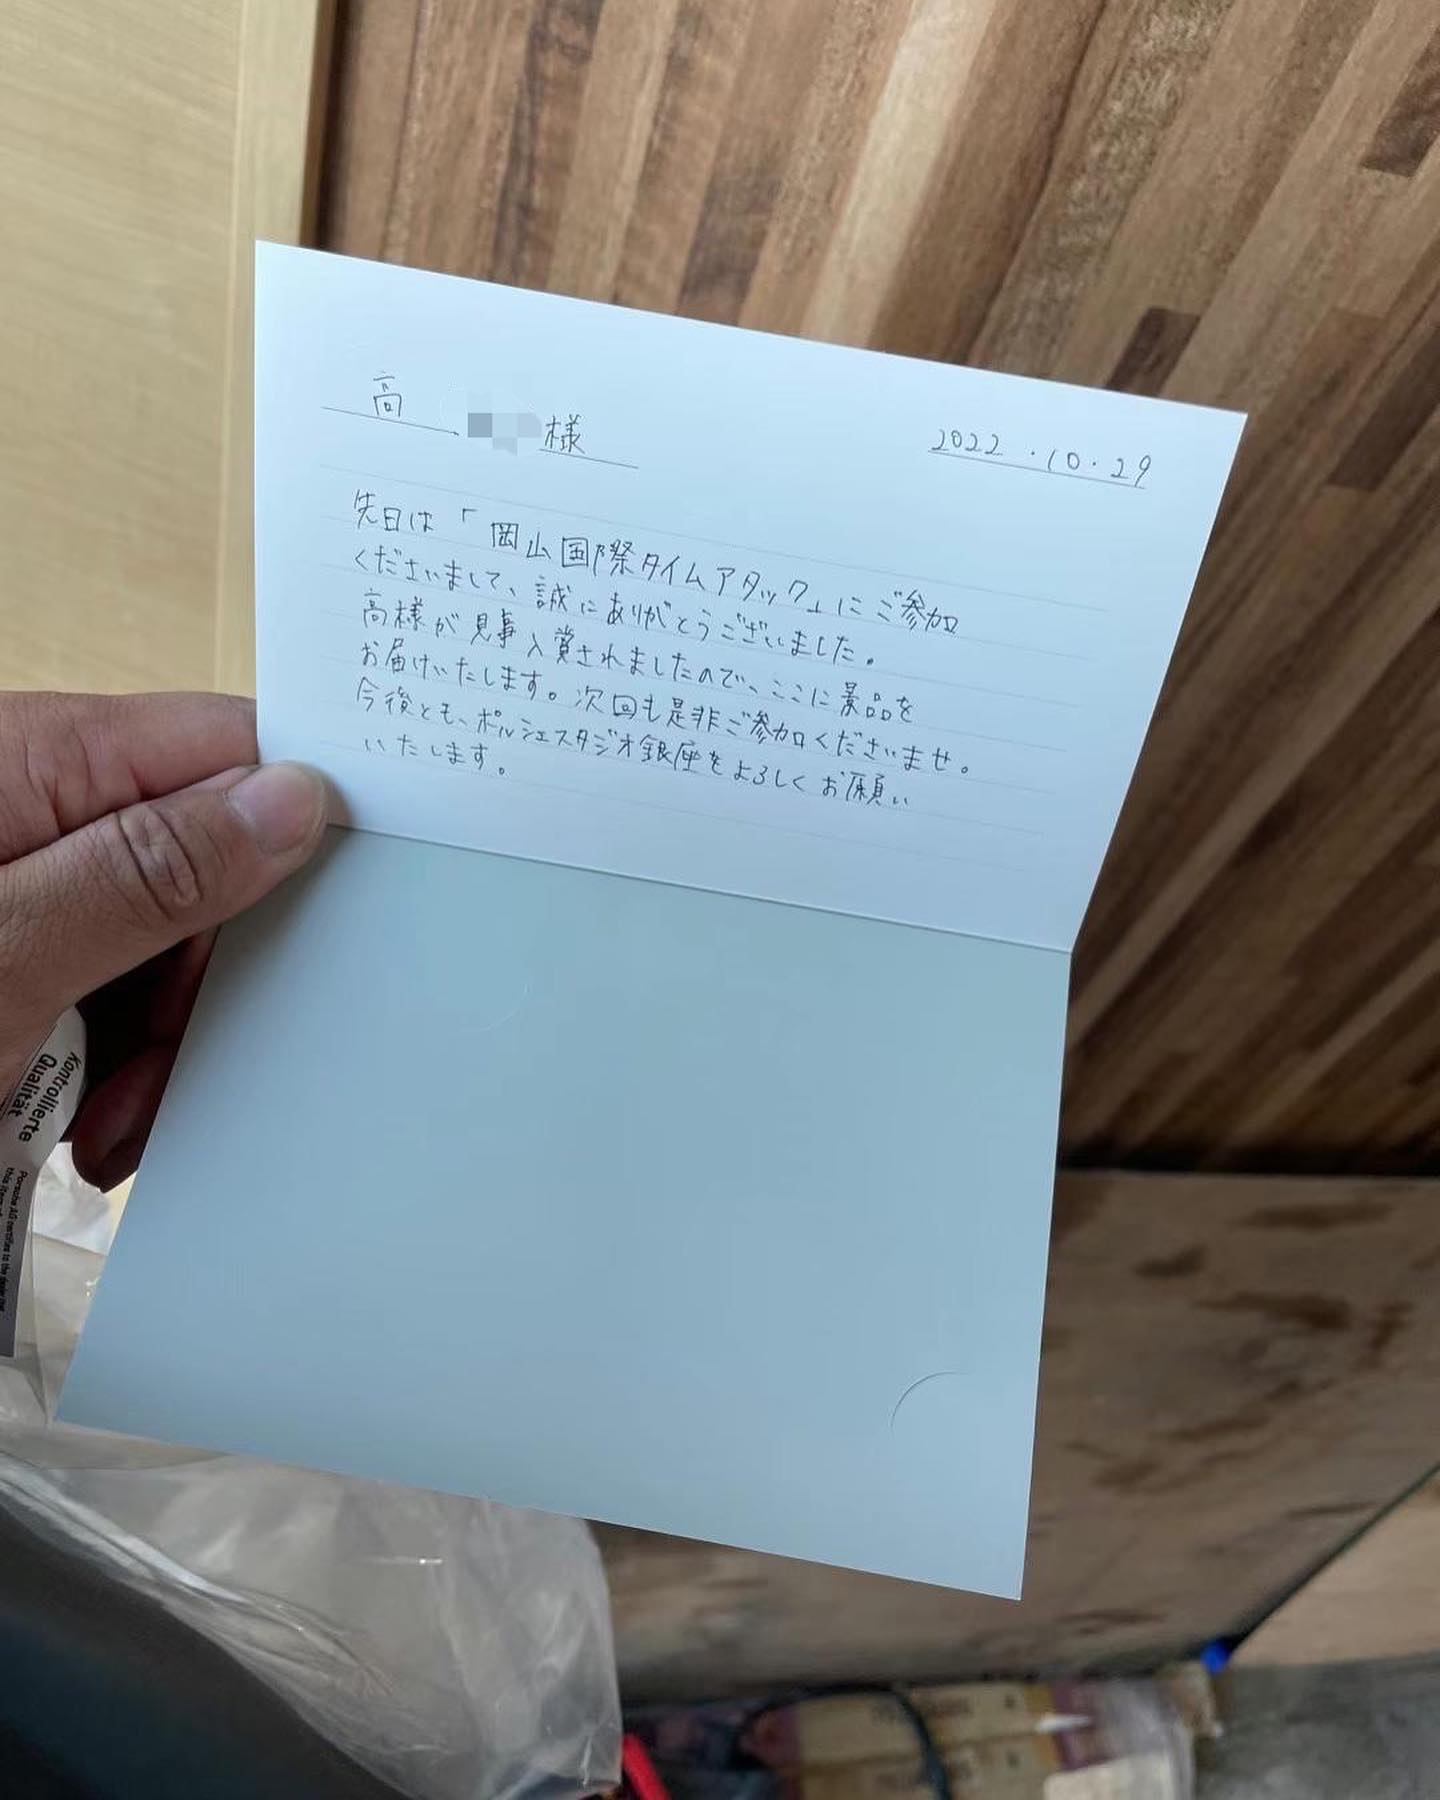 高 様
2022.10.29
先日は「岡山国際タイムアタック」にご参加
くださいまして、誠にありがとうございました。
高様が見事入賞されましたので、ここに景品を
お届けいたします。次回も是非ご参加くださいませ。
今後とも、ポルシェスタジオ銀座をよろしくお願い
いたします。
Kontrollierte
Qualität
Porsche AG certifies to the dealer that